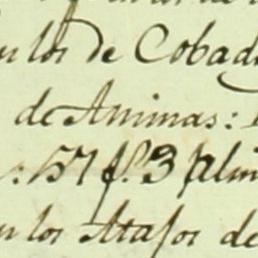 los de Cobad
de Animas:
: 157 f. 3 palm
los Atajos de